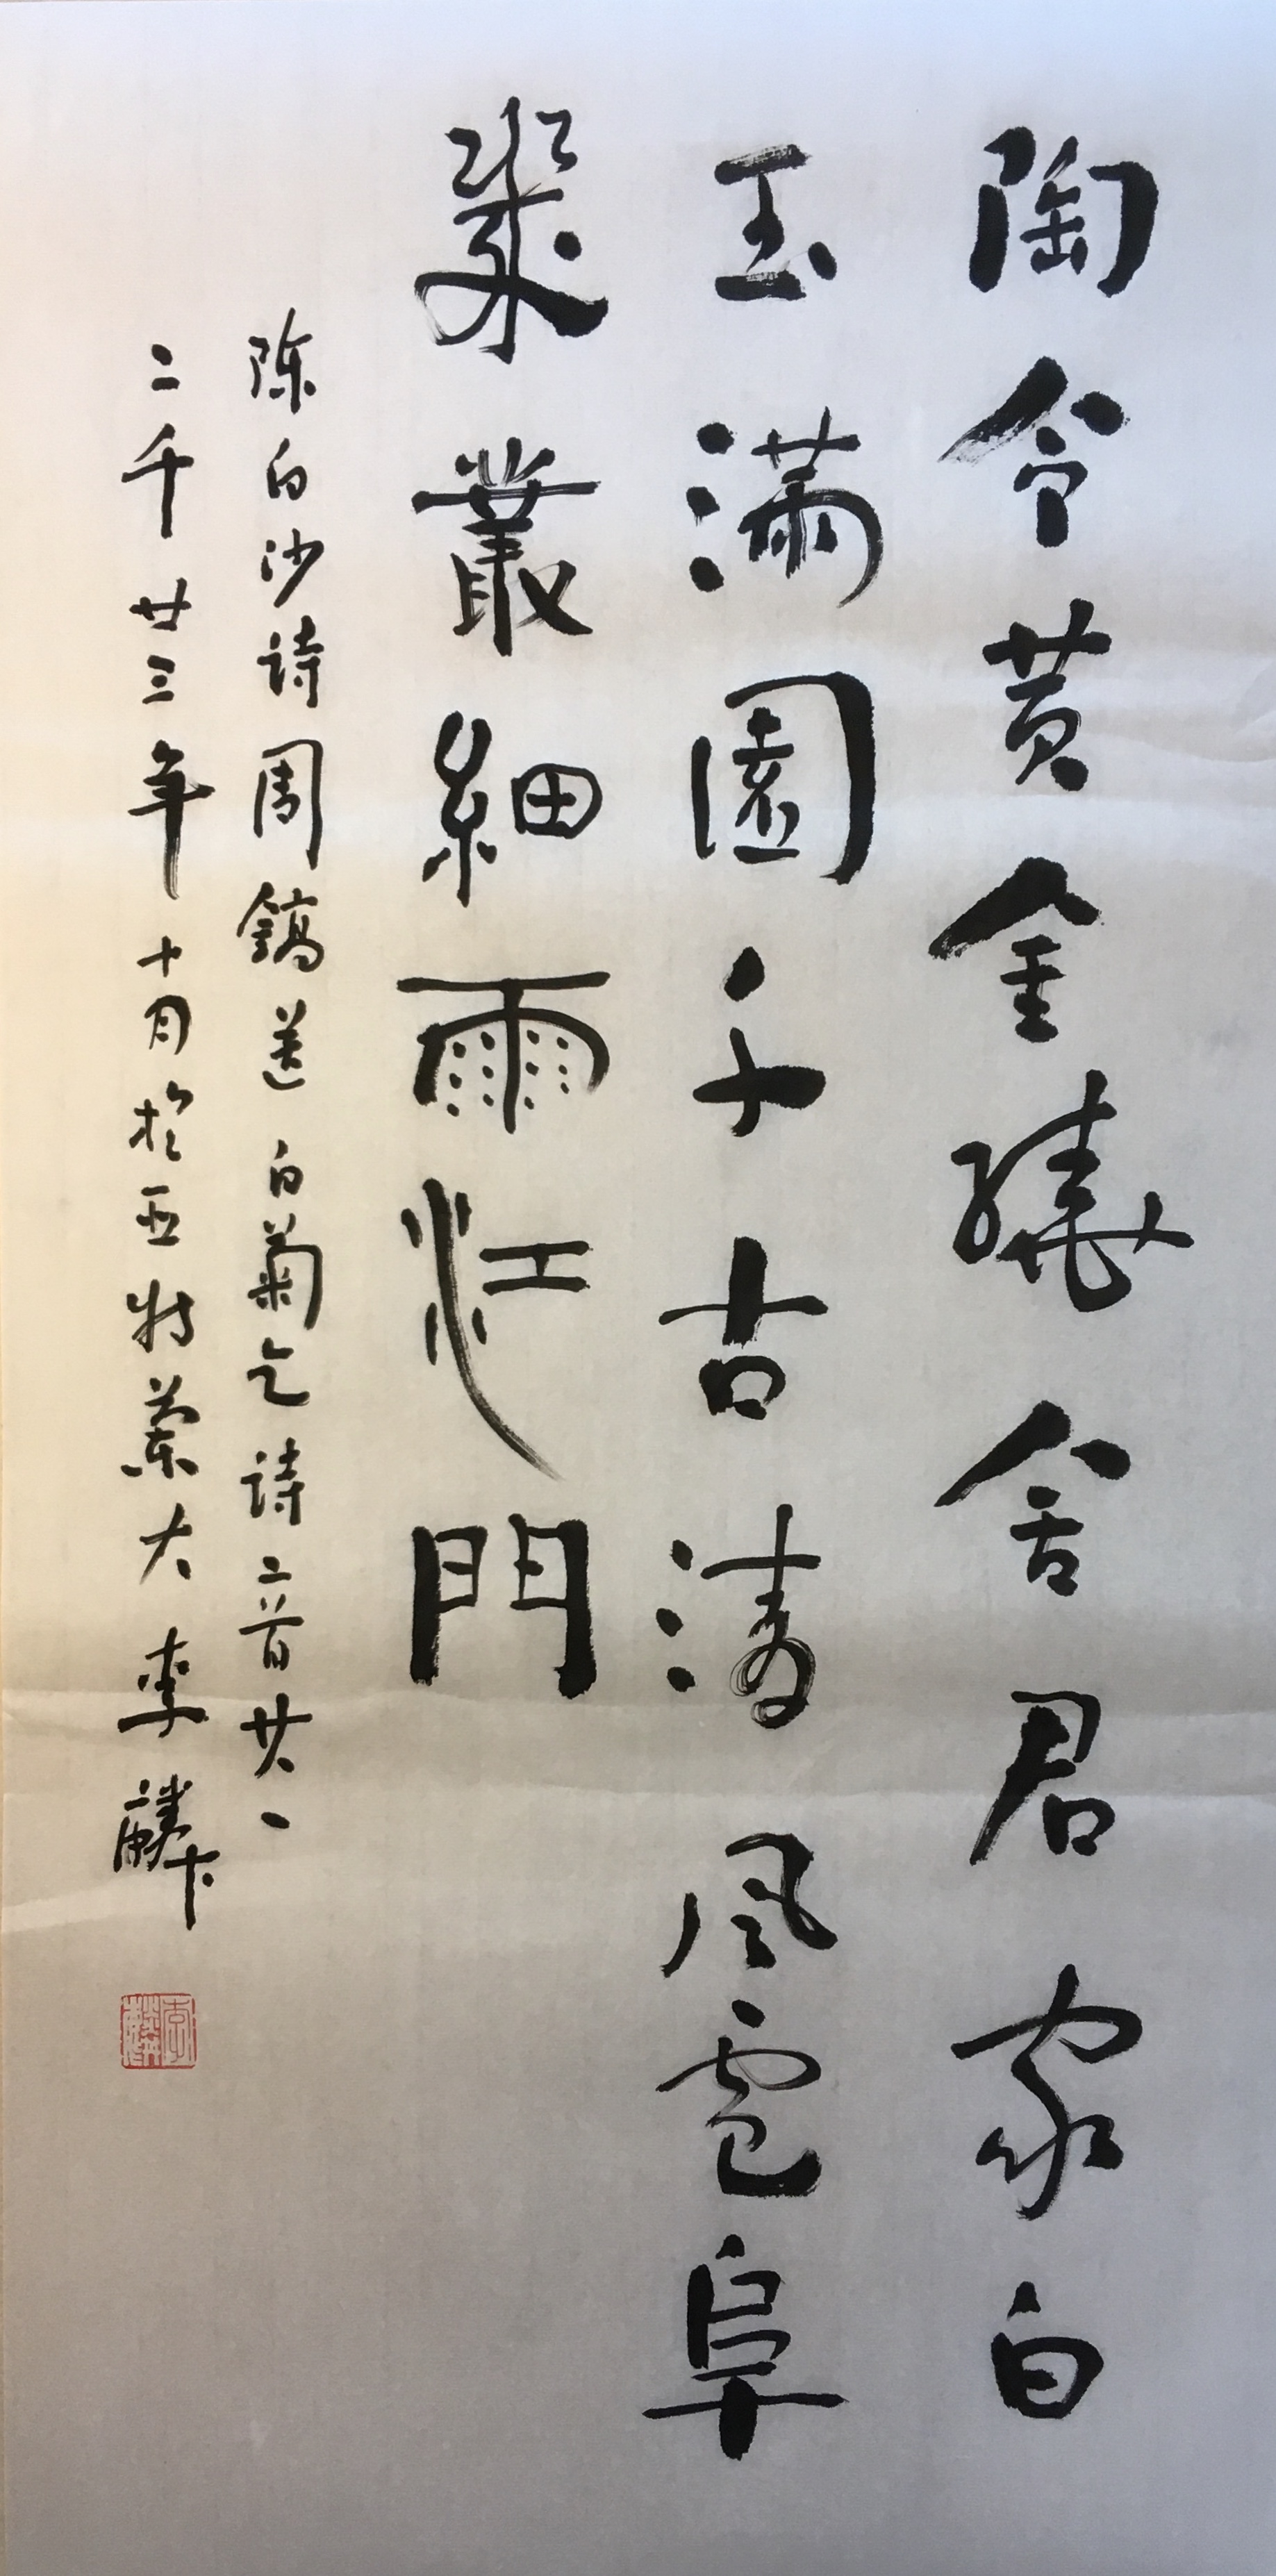 陶令黄金繞舍君家白
玉滿園千古清風皂阜
幾叢細雨江門
陈白沙诗周鎬送白菊乞诗二首其一
二千廿三年十月於亚特蘭大李麟